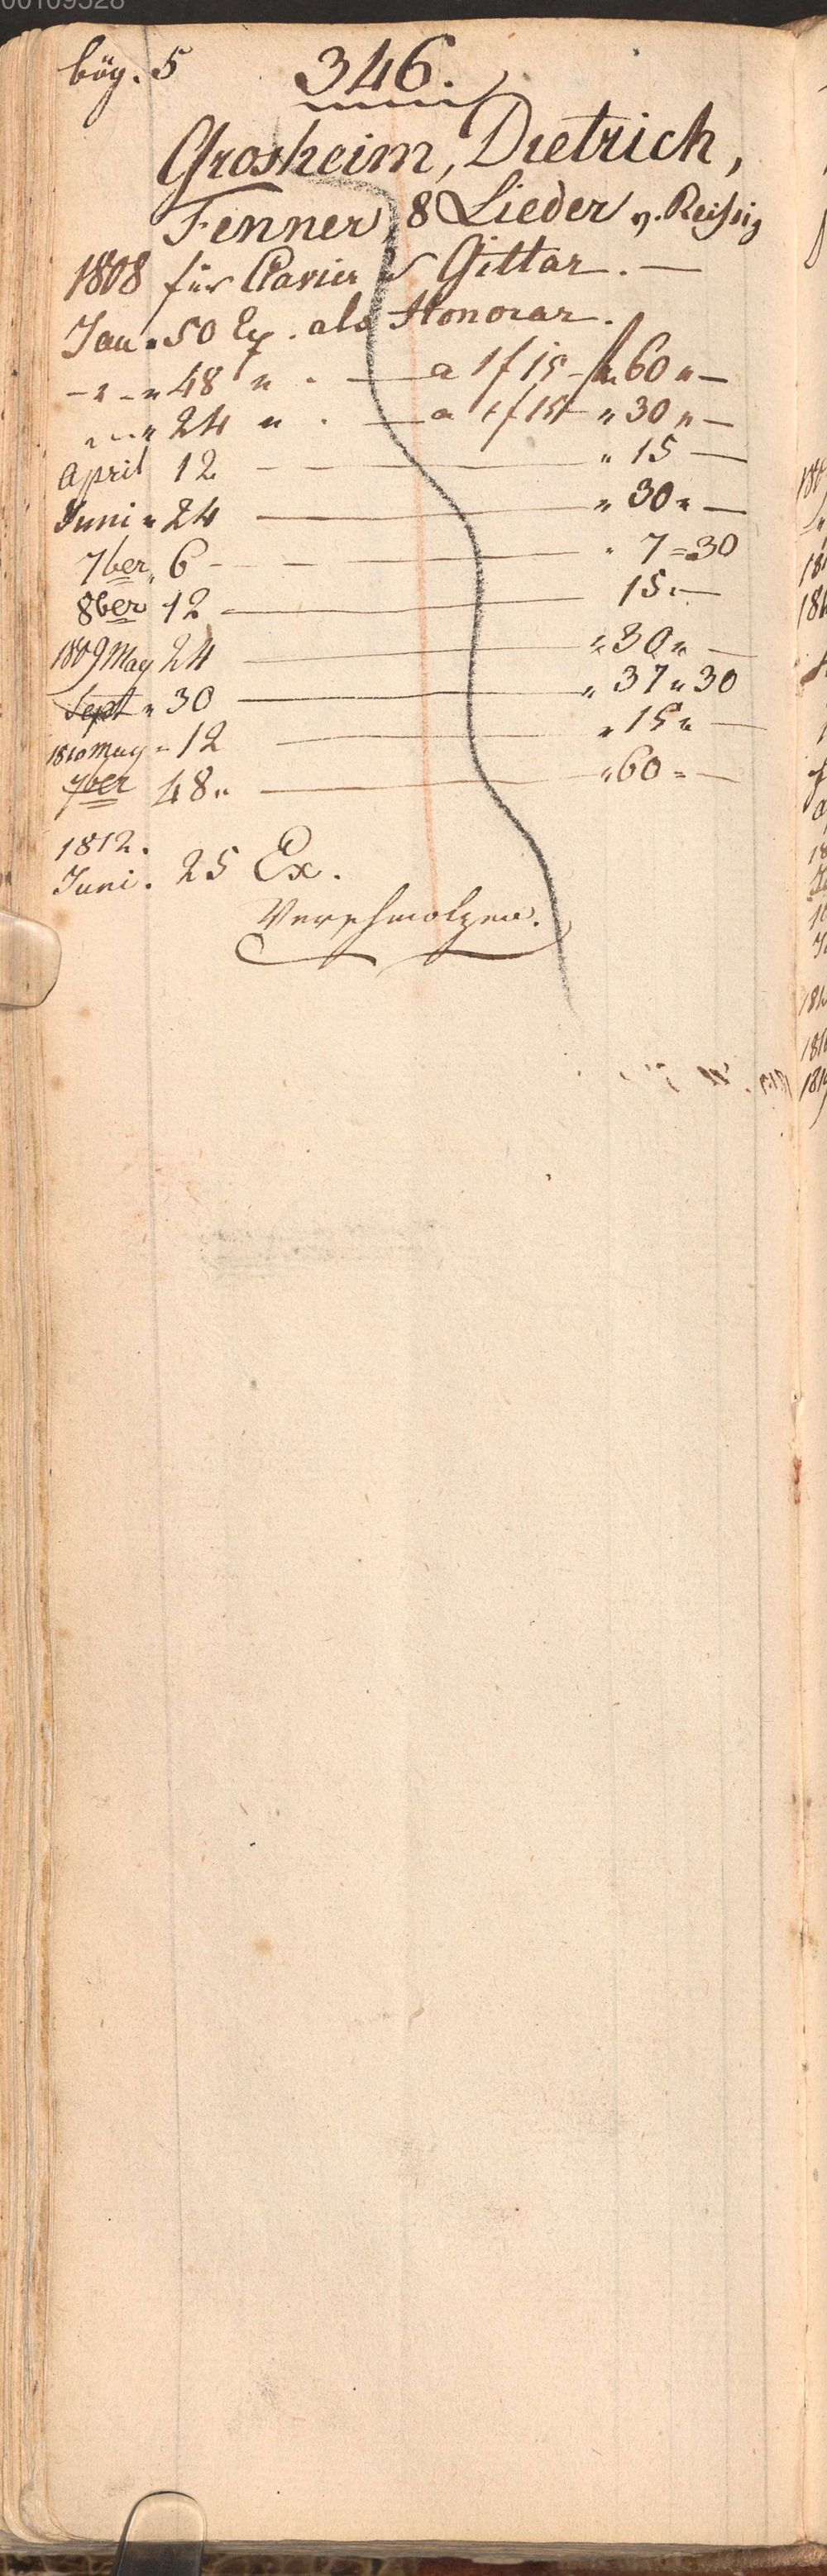 bög. 5 346.
Grosheim, Dietrich,
Fenner, 8 Lieder v. Reissig
1808 für Clavier u Gittar. —
Jan. 50 Ex. als Honorar.
- " - " 48 " . — a 1f 15 - f. 60 " —
" - " 24 " . — a 1f 15 " 30 " —
April 12 — " 15 —
Juni " 24 — " 30 " —
7ber " 6 - — " 7 = 30
8ber 12 — 15 " —
1809 May 24 — " 30 " —
Sept " 30 — " 37 " 30
1810 May - 12 — " 15 " —
7ber 48 " — " 60 = —
1812.
Juni. 25 Ex.
Verschmolzen.